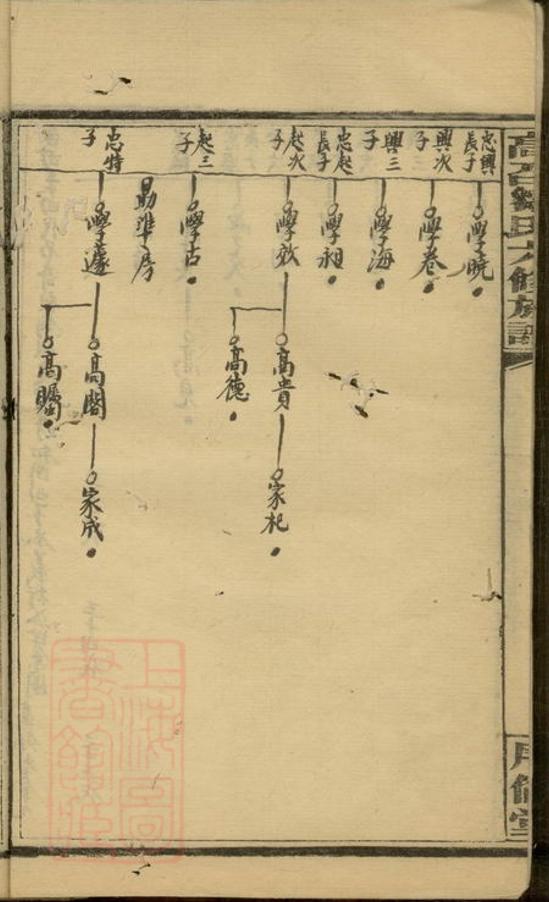 忠興長子
學曉
興次子
學卷
興三子
學海
忠起長子
學祖
起次子
學效
高貴
家杞
高德
起三子
學古
勗準房
忠特子
學蘧
高閣
家成
高矚
氏六修族譜
上海圖書館藏